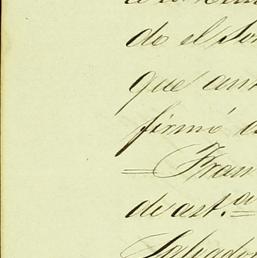 do el Son
que an
firmó a
= Fran
de ast.ª =
Salvador